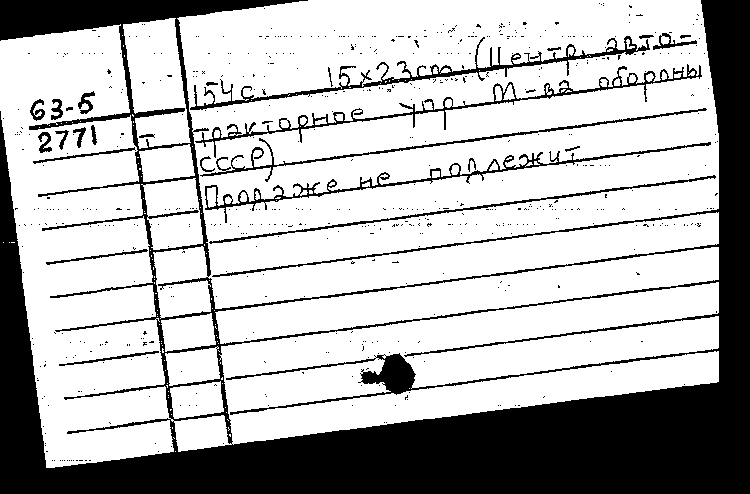 154с. 15х23cm. (Центр. авто-
63-5
2771 т тракторное упр. М-ва обороны
СССР)
Продаже не подлежит